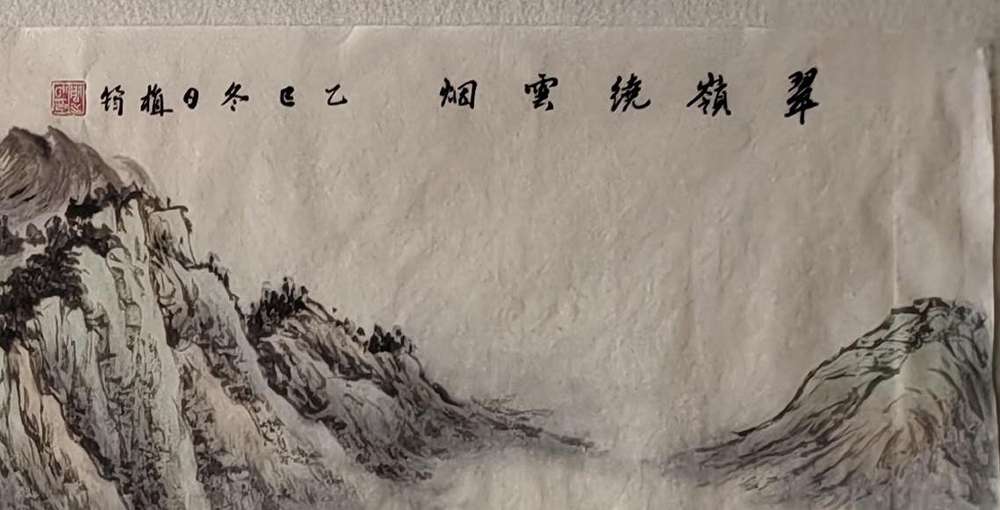 翠嶺繞雲烟 乙巳冬日植筠